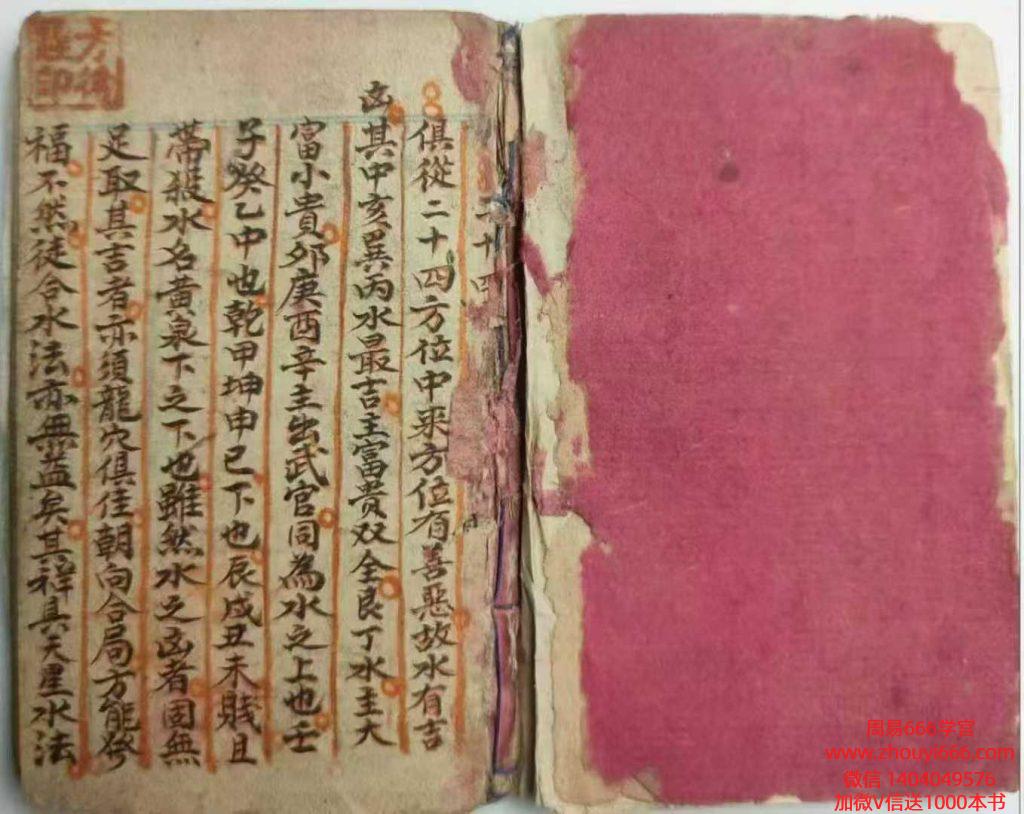 二十四
俱從二十四方位中来方位有善惡故水有吉
凶其中亥巽丙水最吉主富貴双全艮丁水主大
富小貴夘庚酉辛主出武官同為水之上也壬
子癸乙中也乾甲坤申已下也辰戌丑未賤且
帶殺水名黃泉下之下也雖然水之凶者固無
足取其吉者亦須龍穴俱佳朝向合局方能發
福不然徒合水法亦無益矣其詳具天星水法
周易666学宫
www.zhouyi666.com
微信 1404049576
加微V信送1000本书